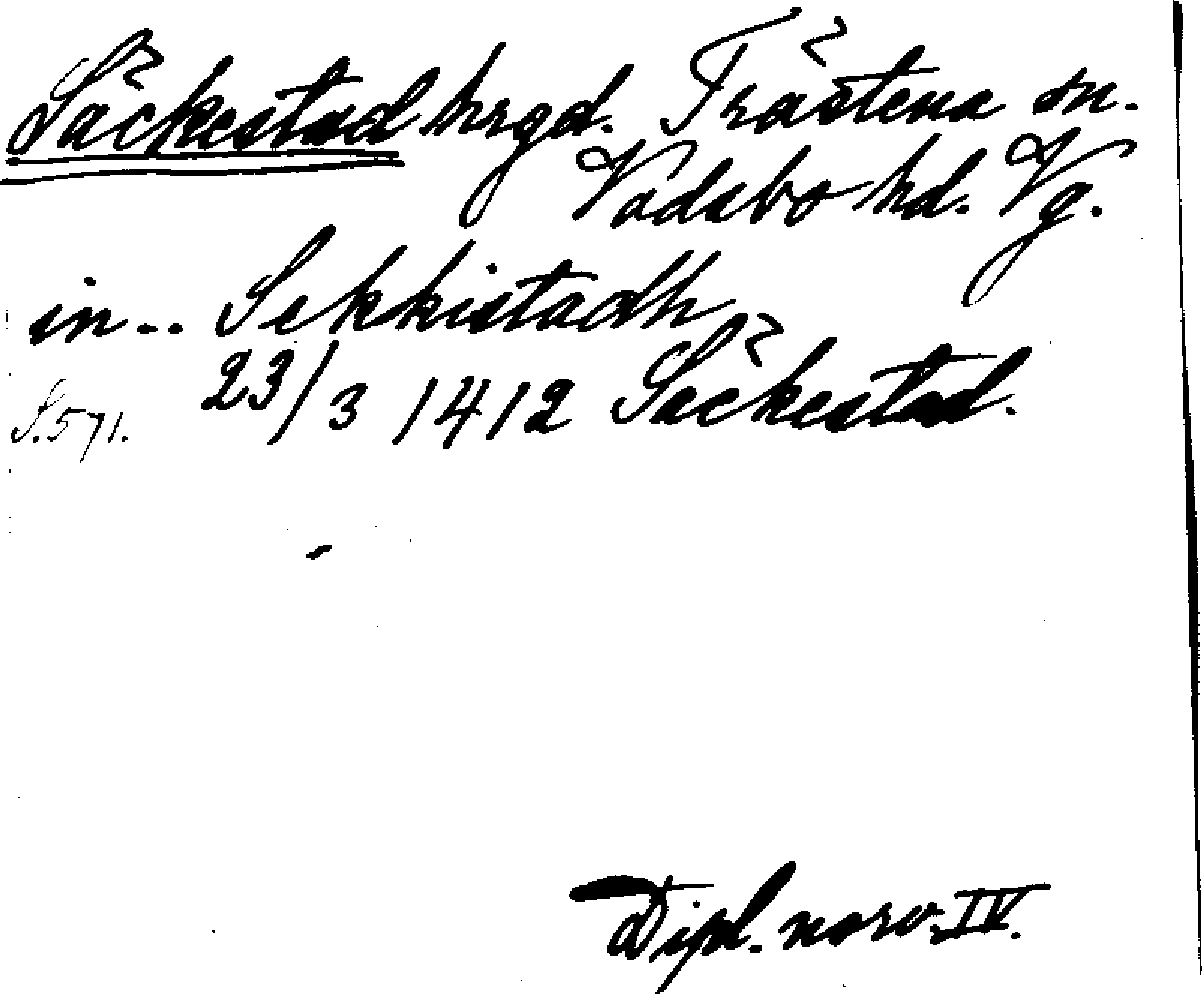 Säckestad hrgd. Trästena sn.
Vadsbo hd. Vg.
in -- Sekkistadh
23/3 1412 Säckestad.
S. 571.
Dipl. norv. IV.